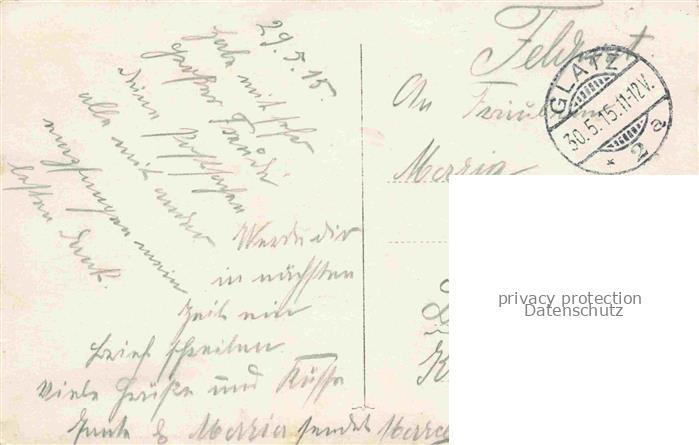 29.5.15
Habe mit sehr
großer Freude
deine Postsachen
alle mit
empfangen mein
besten Dank.
Werde dir
in nächsten
Zeit ein
Brief schreiben
Viele Grüße und Küsse
sendet
Feldpost.
An Fräulein
GLATZ
30.5.15.11-12V.
* 2a
privacy protection
Datenschutz